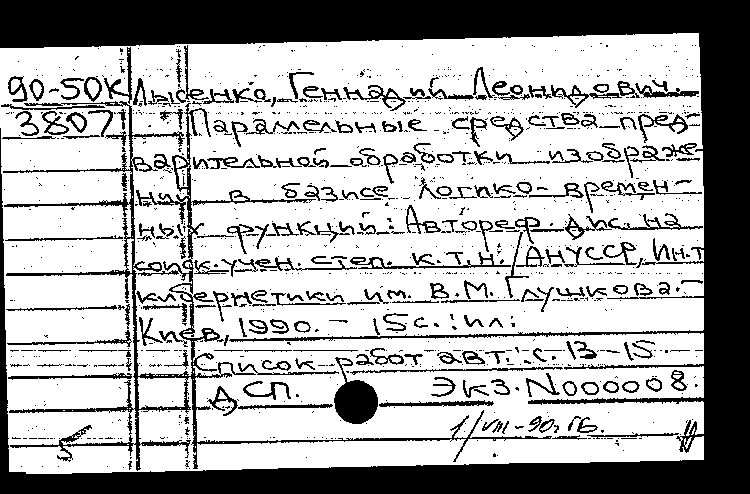 90-50К Лысенко, Геннадий Леонидович.
3807 Парамельные средства пред-
варительной обработки изображе-
ний в базисе логико-времен-
ных функций: Автореф. дис. на
соиск. учен. степ. к.т.н. / АНУССР, Ин-т
кибернетики им. В.М. Глушкова.-
Киев, 1990. - 15с.: ил:
Список работ авт.: с. 13-15.
ДСП. Экз. N000008.
1/VIII-90г. ГБ.
5